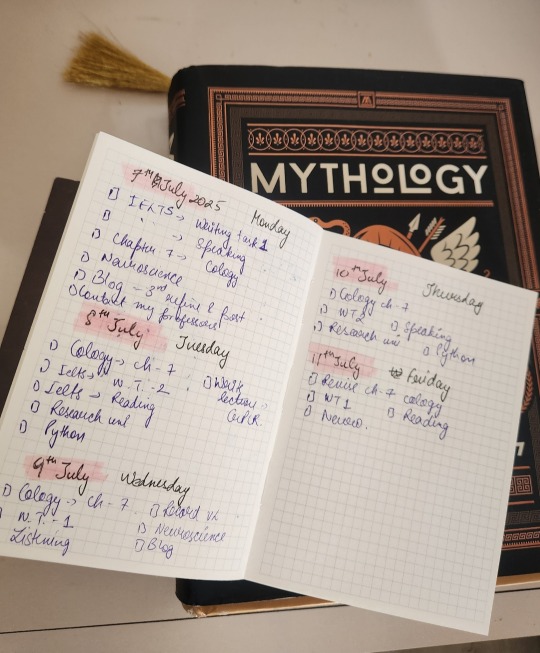 MYTHOLOGY
7th July 2025 Monday
IELTS → Writing task 1
→ Speaking
Chapter 7 → Cology
Neuroscience
Blog - 3rd refine & post
Contact my professors
8th July Tuesday
Cology → ch-7
Ielts → W.T.-2
Ielts → Reading
Research uni
Python
9th July Wednesday
Cology → ch-7 Record
W.T.-1 Neuroscience
Listening Blog
10th July Thursday
Cology ch-7
WT2 Speaking
Research uni Python
11th July Friday
Revise ch-7 cology
WT1 Reading
Neuro.